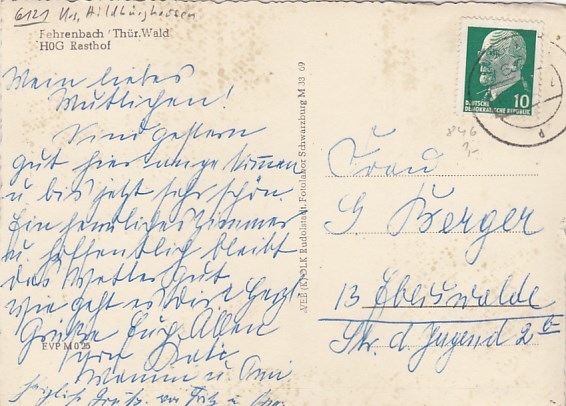 6121 Krs. Hildburghausen
Fehrenbach/Thür. Wald
HOG Rasthof
Mein liebes
Muttichen!
Sind gestern
gut hier angekommen
u. bis jetzt sehr schön.
Ein herrliches Zimmer
u. hoffentlich bleibt
das Wetter gut
wie geht es Dir?
Grüße Euch Allen
EVP M 0,25
u.
herzliche Grüße von Fritz u.
VEB (K) OLK Rudolstadt, Fotolabor Schwarzburg M 33 69
DEUTSCHE
DEMOKRATISCHE REPUBLIK
10
846
Frau
G Berger
13 Eberswalde
Str. d. Jugend 2b